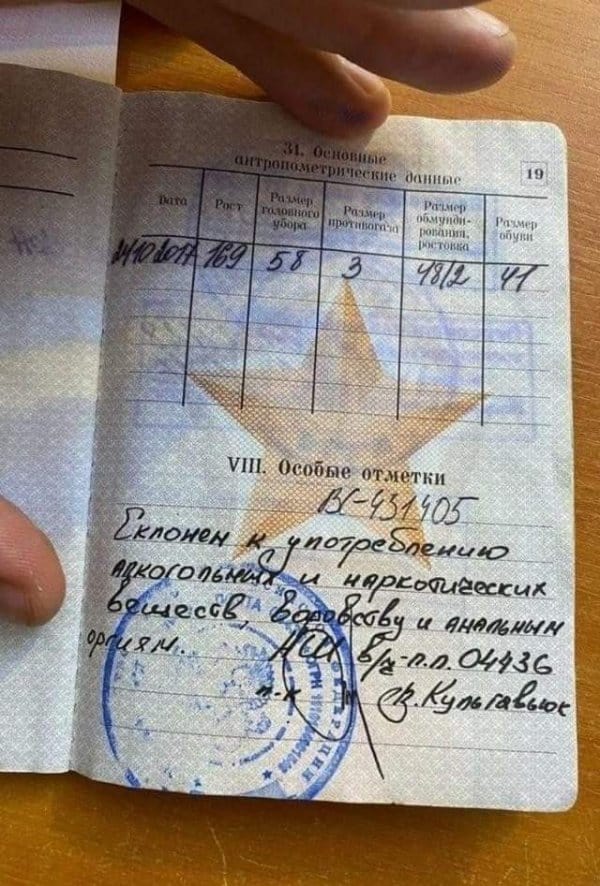 31. Основные
антропометрические данные
19
Дата Рост Размер головного убора Размер противогаза Размер обмунди-рования, ростовка Размер обуви
24.10.2017 169 58 3 48/2 41
VIII. Особые отметки
ВС-431405
Склонен к употреблению
алкогольных и наркотических
веществ, воровству и анальным
оргиям. НШ в/ч-п.п. 04436
п-к Культавьюк